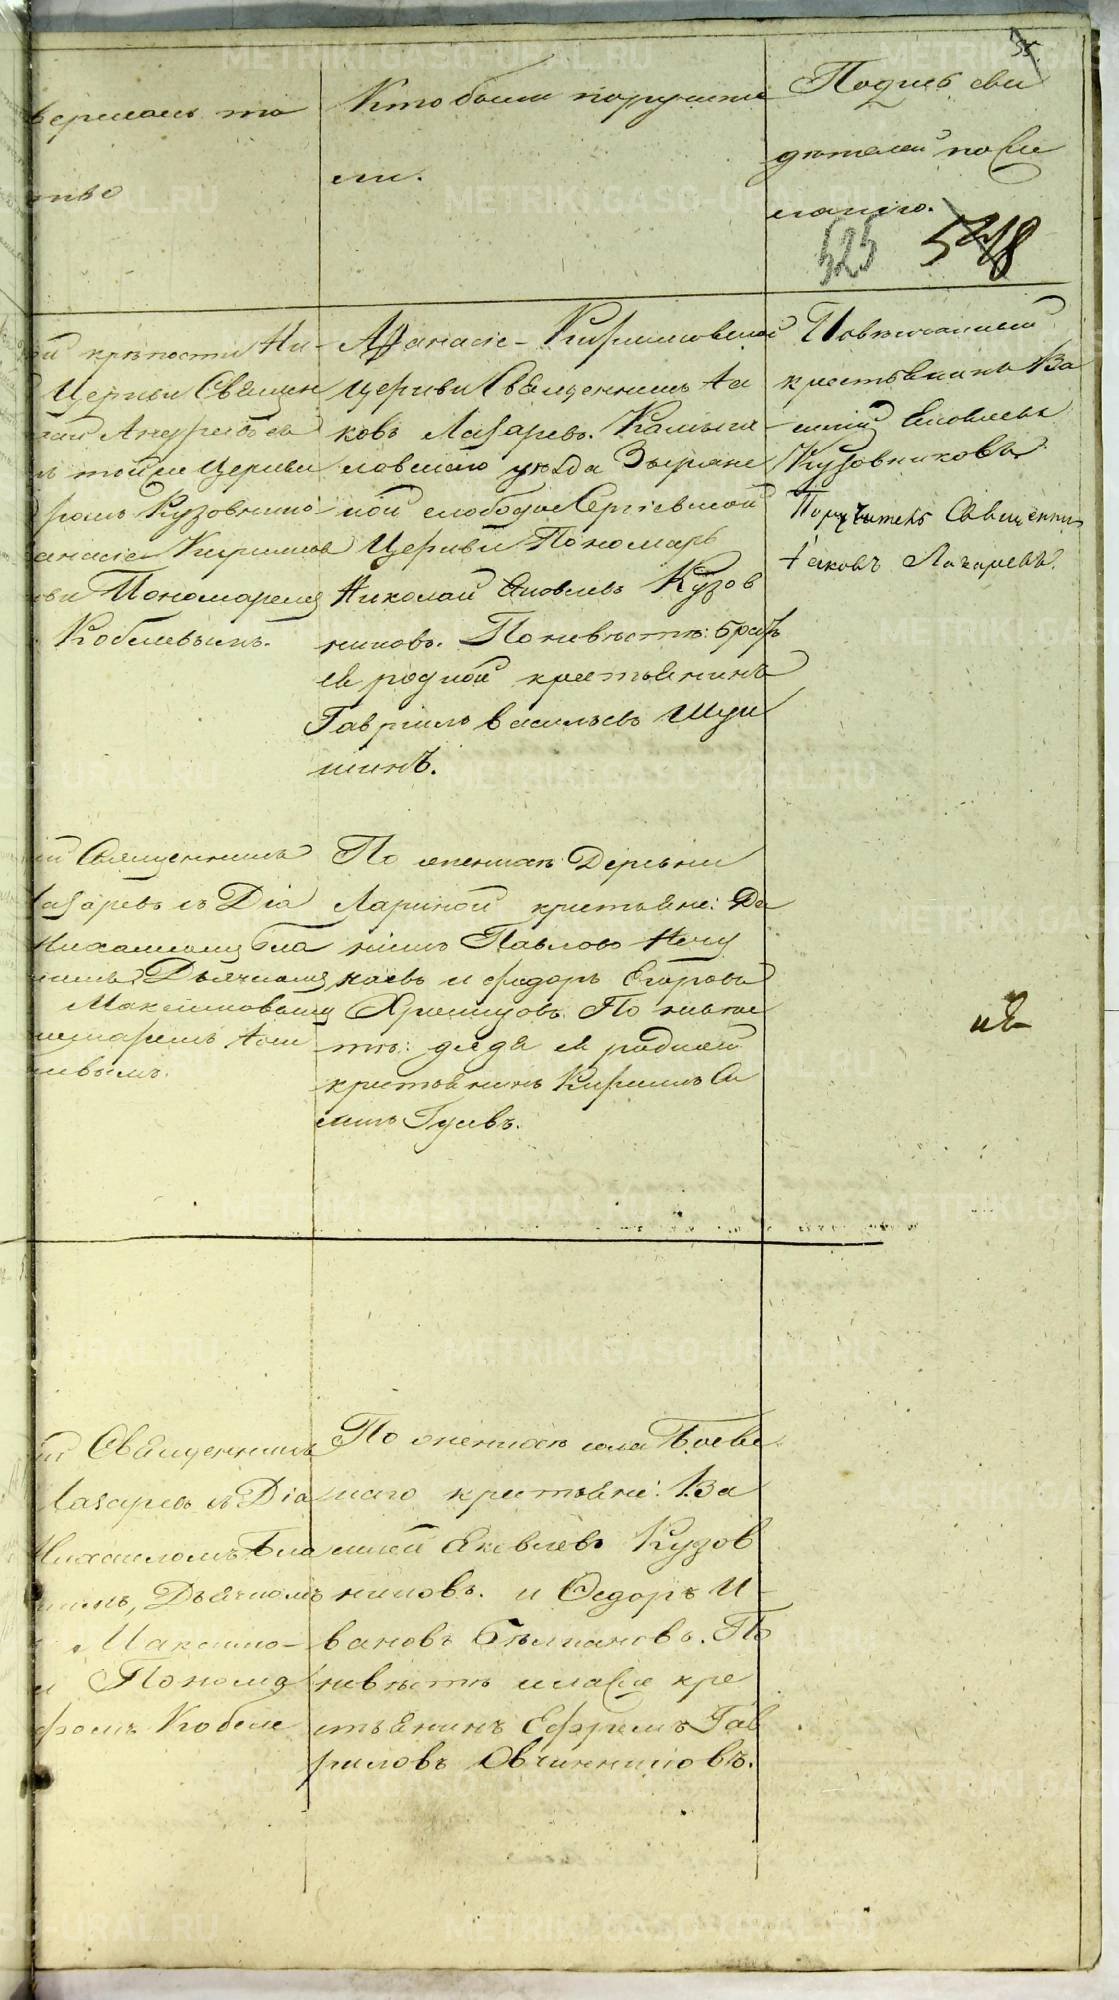 55.
вершалъ та
инство
Кто были поручите
ли.
Подпись сви
дѣтелей по же
ланію.
525 548
ой крѣпости Ни-
Церкви Священ
Андреевъ
ъ той же Церкви
ромъ Кузовнико-
анасіе-Кирилов
кви Пономаремъ
Кобелевымъ.
Аѳанасіе-Кириловской
Церкви Священникъ Іа
ковъ Лазаревъ. Камыш
ловскаго уѣзда Зырянс
кой слободы Сергіевской
Церкви Пономарь
Николай Яковлевъ Кузов
никовъ. По невѣстѣ: братъ
ея родной крестьянинъ
Гаврилъ Васильевъ Шуп
шинъ.
крестьянинъ Ва
силій Яковлевъ
Кузовниковъ.
Поручитель Священни
Іаковъ Лазаревъ.
ій Священникъ
Лазаревъ съ Діа
Михаиломъ Бла
Дьячкомъ
Максимовымъ
номаремъ
левымъ.
По женихѣ Деревни
Лариной крестьяне: Да
нилъ Павловъ
каевъ и Федоръ Егоровъ
Храмцовъ. По невѣс
тѣ: дядя ея родной
крестьянинъ Кирилъ Си
линъ Гусевъ.
ій Священникъ
Лазаревъ съ Діа
Михаиломъ Бла
нымъ, Дьячкомъ
Максимо-
и Понома
ромъ Кобеле
По женихѣ села Боевс
каго крестьяне: Ва
силій Яковлевъ Кузов
никовъ. и Ѳедоръ И-
вановъ Бѣлкановъ. По
невѣстѣ того же кре
стьянинъ Ефремъ Гав
риловъ Овчинниковъ.
METRIKI.GASO-URAL.RU